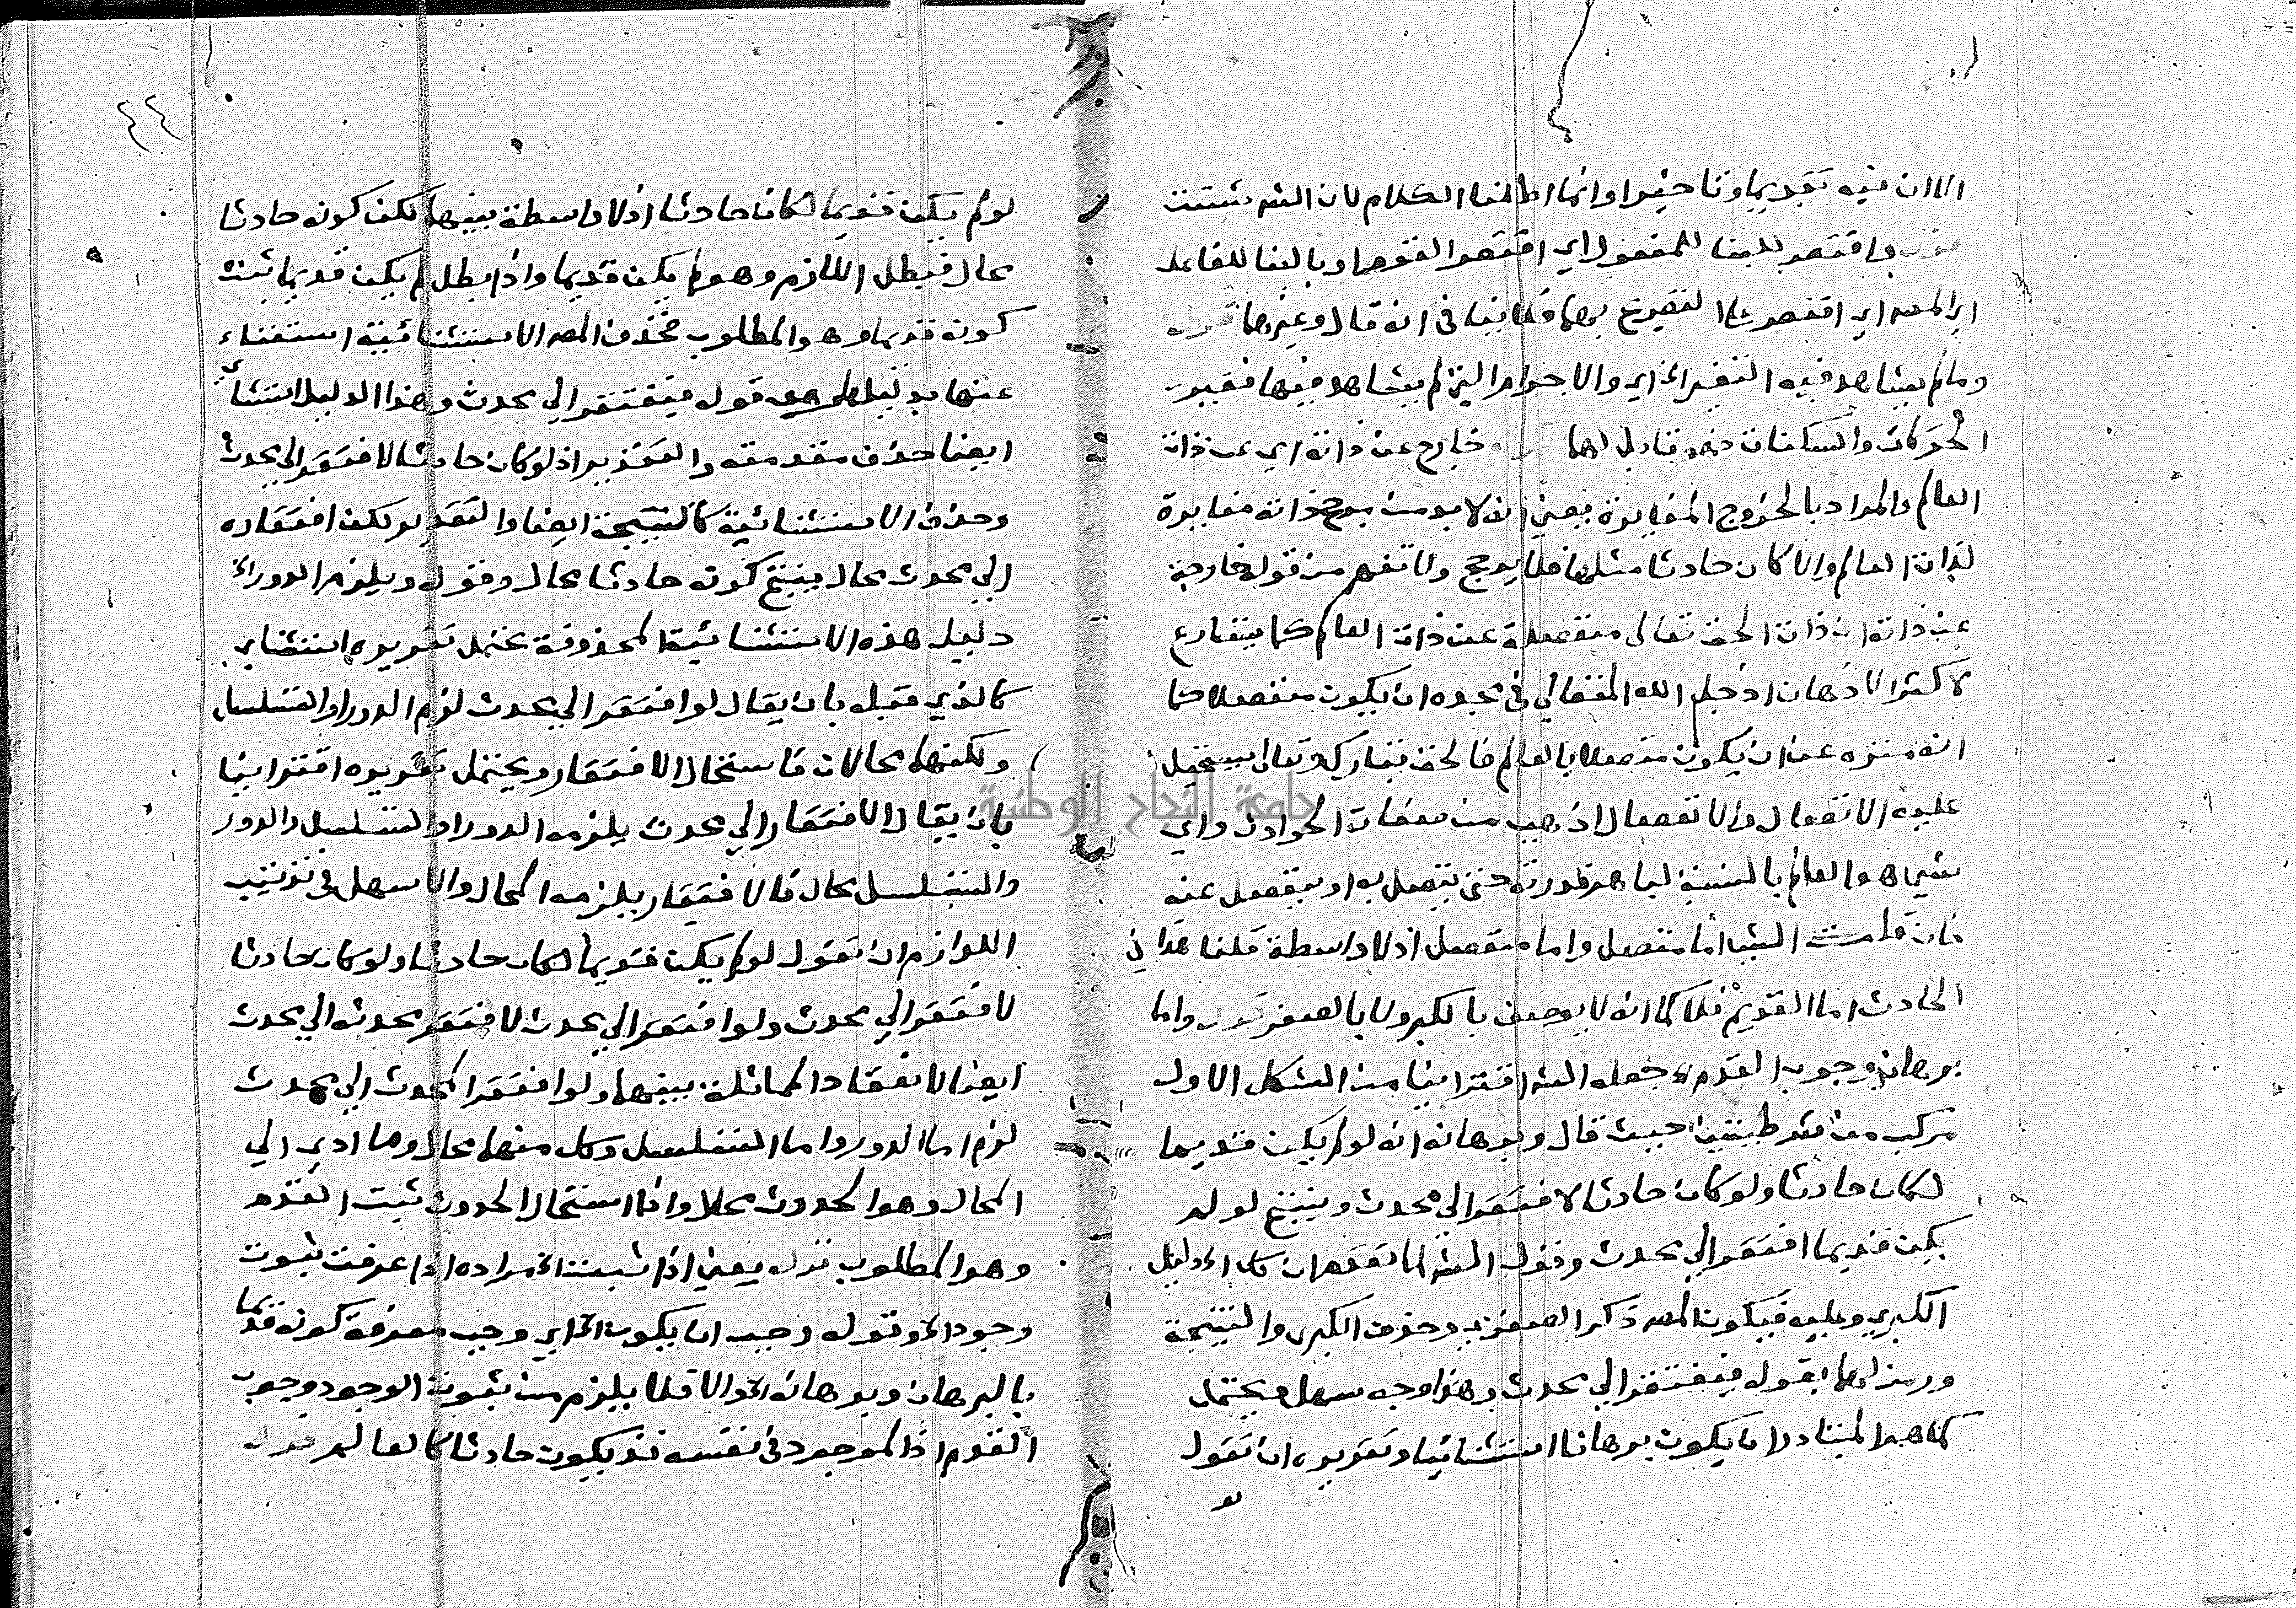 الا ان فيه تقديما وتاخيرا وانما اطلنا الكلام لان الشر شتت
قوله واقتصر بالبنا للمفعول اي اقتصر القوم او بالبنا للفاعل
اي المصر اي اقتصر على التصريح بهما فلا ينافي انه قال وغيرها قوله
وما لم يشاهد فيه التغير الخ اي والاجرام التي لم يشاهد فيها تغير
الحركات والسكنات فهو قابل لها قوله خارج عن ذاته اي عن ذات
العالم والمراد بالخروج المغايرة يعني انه لا بد من مرجح ذاته مغايرة
لذات العالم والا كان حادثا مثلها فلا يرجح ولا تفهم من قوله خارجة
عن ذاته ان ذات الحق تعالى منفصلة عن ذات العالم كما يتسارع
لاكثر الاذهان اذ جل الله المتعالي في مجده ان يكون منفصلا كما
انه منزه عن ان يكون متصلا بالعالم فالحق تبارك وتعالى يستحيل
عليه الاتصال والانفصال اذ هي من صفات الحوادث واي
شي ما هو العالم بالنسبة لباهر قدرته حتى يتصل به او ينفصل عنه
فان قلت الشي اما متصل واما منفصل اذ لا واسطة قلنا هذا في
الحادث اما القديم فلا كما انه لا يوصف بالكبر ولا بالصغر قوله واما
برهان وجوب القدم الخ جعله الشر اقترانيا من الشكل الاول
مركب من شرطيتين حيث قال وبرهانه انه لو لم يكن قديما
لكان حادثا ولو كان حادثا لافتقر الى محدث وينتج لو لم
يكن قديما افتقر الى محدث وقول الشر لما تقدم ان كل الخ دليل
الكبرى وعليه فيكون المصر ذكر الصغرى وحذف الكبرى والنتيجة
ورمز لهما بقوله فيفتقر الى محدث وهذا وجه سهل ويحتمل
كما هو المتبادر ان يكون برهانا استثنائيا وتقريره ان تقول
لو
٤٤
لو لم يكن قديما لكان حادثا اذ لا واسطة بينهما لكن كونه حادثا
محال فبطل اللازم وهو لم يكن قديما واذا بطل لم يكن قديما ثبت
كونه قديما وهو المطلوب فحذف المصر الاستثنائية استغناء
عنها بدليلها وهو قوله فيفتقر الى محدث وهذا الدليل استثنائي
ايضا حذف مقدمته والتقدير اذ لو كان حادثا لافتقر الى محدث
وحذف الاستثنائية كالنتيجة ايضا والتقدير لكن افتقاره
الى محدث محال ينتج كونه حادثا محال وقوله ويلزم الدور الخ
دليل هذه الاستثنائية المحذوفة يحتمل تقريره استثنائي
كالذي قبله بان يقال لو افتقر الى محدث لزم الدور او التسلسل
ولكنهما محالان فاستحال الافتقار ويحتمل تقريره اقترانيا
بان يقال الافتقار الى محدث يلزمه الدور او التسلسل والدور
والتسلسل محال فالافتقار يلزمه المحال والاسهل في ترتيب
اللوازم ان تقول لو لم يكن قديما لكان حادثا ولو كان حادثا
لافتقر الى محدث ولو افتقر الى محدث لافتقر محدثه الى محدث
ايضا لانعقاد المماثلة بينهما ولو افتقر المحدث الى محدث
لزم اما الدور واما التسلسل وكل منهما محال وما ادى الى
المحال وهو الحدوث محال واذا استحال الحدوث ثبت القدم
وهو المطلوب قوله يعني اذا ثبت الخ مراده اذا عرفت ثبوت
وجود الخ وقوله وجب ان يكون الخ اي وجب معرفة كونه قديما
بالبرهان وبرهانه الخ والا فلا يلزم من ثبوت الوجود وجوب
القدم اذ الموجود في نفسه قد يكون حادثا كالعالم قوله
جامعة النجاح الوطنية